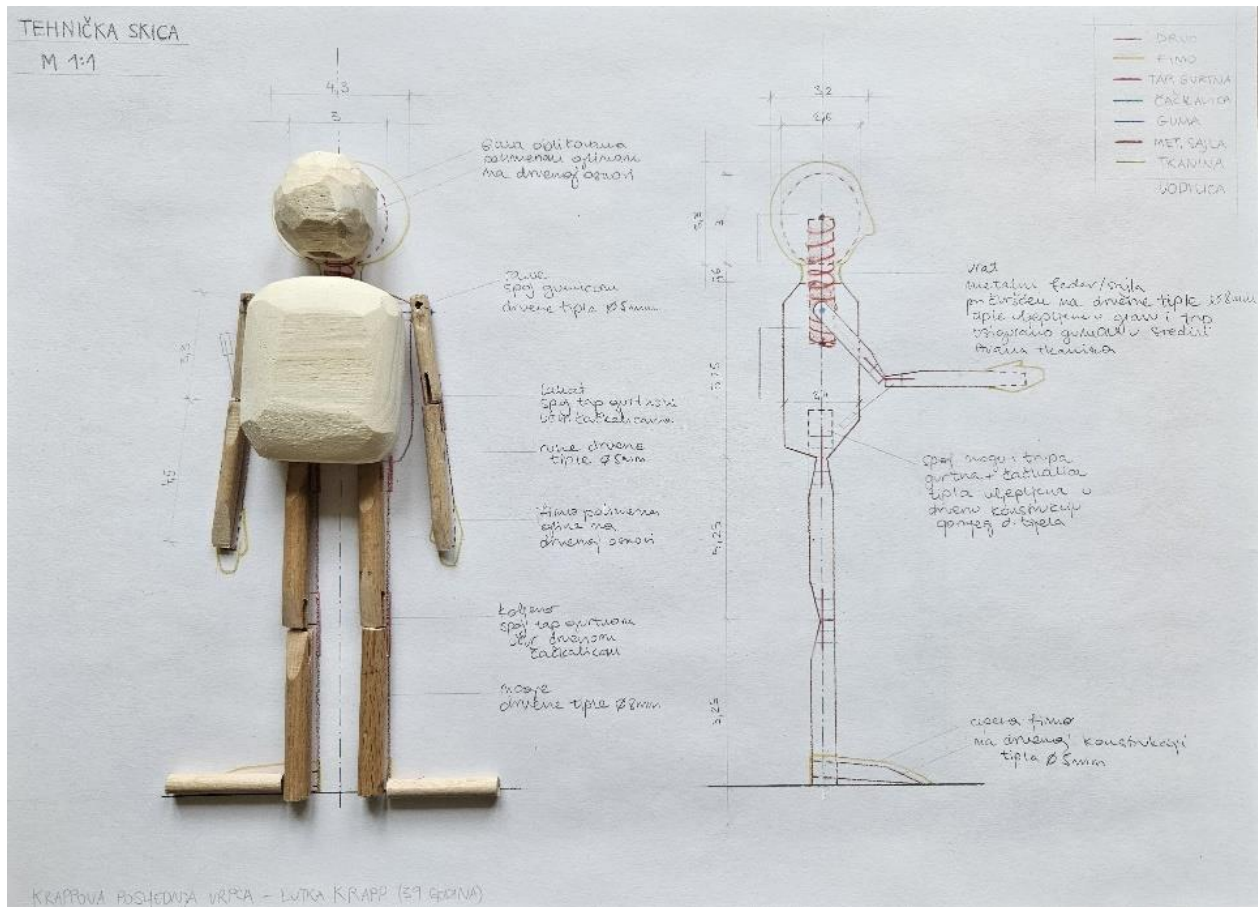 TEHNIČKA SKICA
M 1:1
4,3
3
glava oblikovana
polimernom glinom
na drvenoj osnovi
spoj gumicom
drvene tiple Ø5mm
3,3
lakat
spoj tap gurtnom
učvr. čačkalicama
ruke drvene
tiple Ø5mm
4,5
fimo polimerna
glina na
drvenoj osnovi
koljeno
spoj tap gurtnom
učvr drvenom
čačkalicom
noge
drvene tiple Ø8mm
3,2
2,6
3
vrat
metalni feder/sajla
pričvršćen na drvene tiple Ø8mm
tiple uljepljene u glavi i trup
osigurano gumom u sredini
tkanina
5,25
spoj nogu i trupa
gurtna + čačkalica
tipla uljepljena u
drvenu konstrukciju
donjeg d. tijela
5,25
5,25
cipela fimo
na drvenoj konstrukciji
tipla Ø5mm
DRVO
FIMO
TAP. GURTNA
ČAČKALICA
GUMA
MET. SAJLA
TKANINA
VODILICA
KRAPPOVA POSLJEDNJA VRPCA - LUTKA KRAPP (39 GODINA)